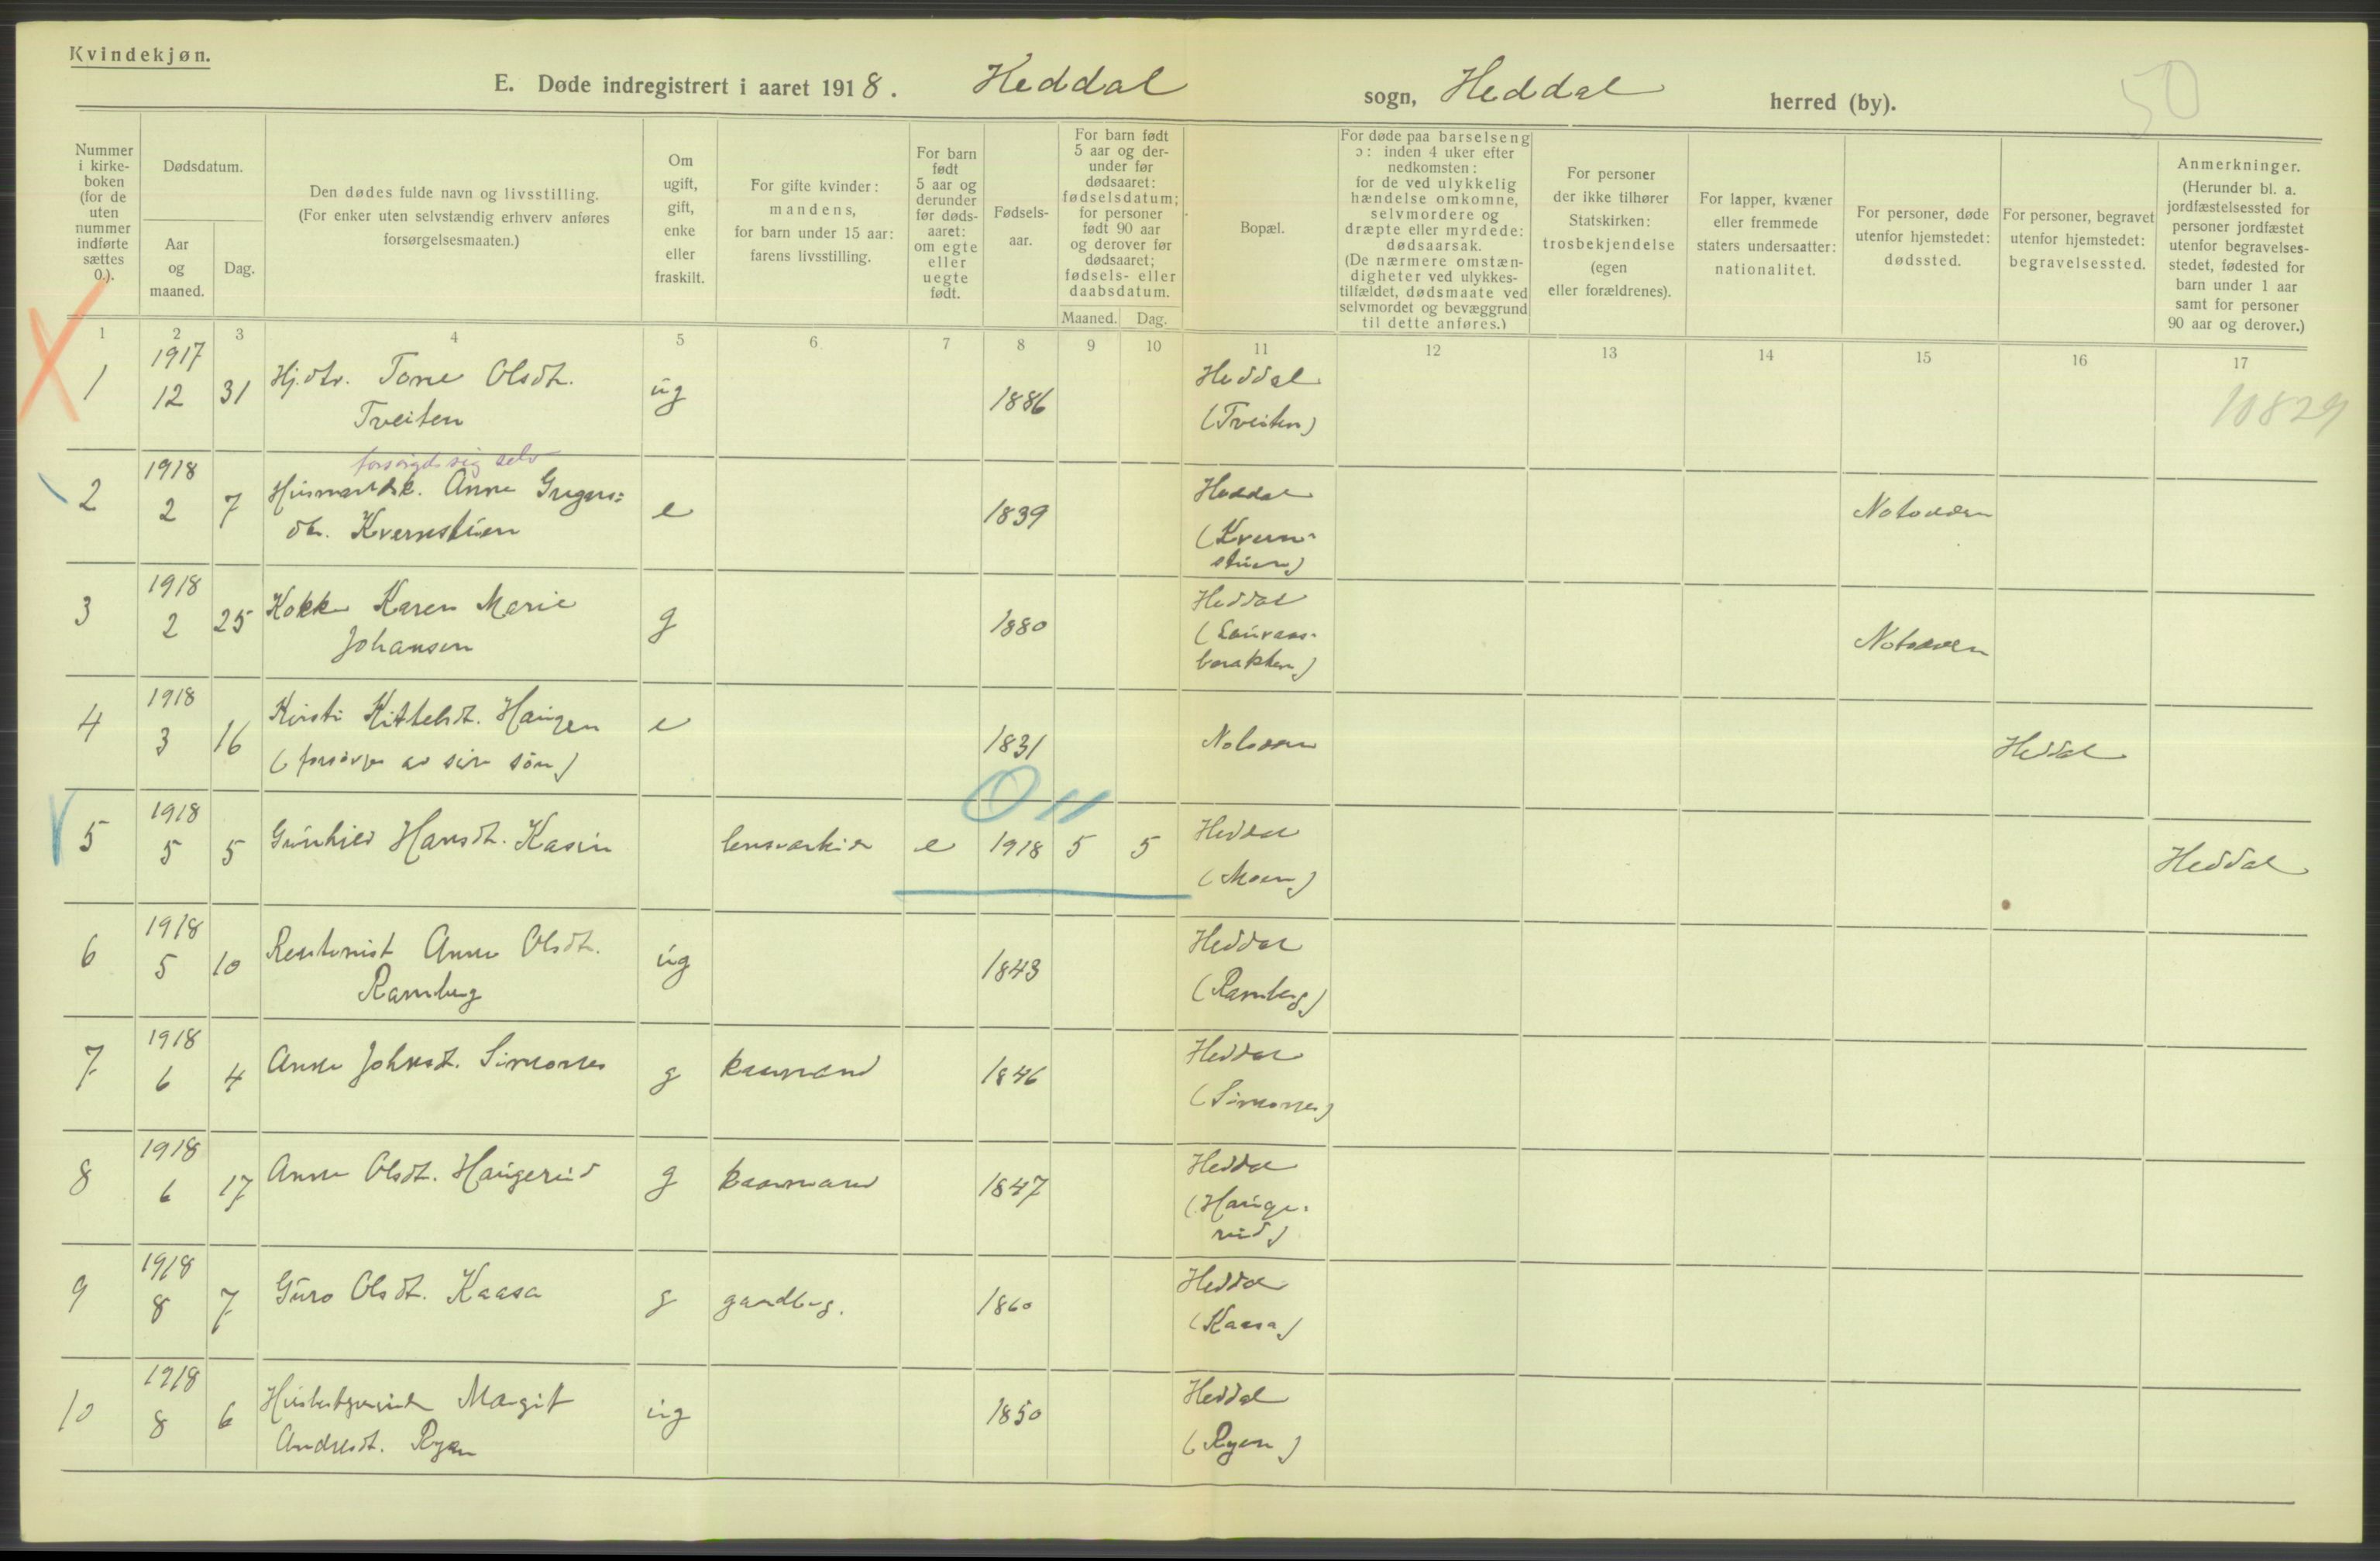 Kvindekjøn.
E. Døde indregistrert i aaret 1918. Heddal sogn, Heddal herred (by).
50
Nummer i kirke-boken (for de uten nummer indførte sættes 0.).
Dødsdatum.
Aar og maaned.
Dag.
Den dødes fulde navn og livsstilling.
(For enker uten selvstændig erhverv anføres
forsørgelsesmaaten.)
Om ugift, gift, enke eller fraskilt.
For gifte kvinder:
mandens,
for barn under 15 aar:
farens livsstilling.
For barn født 5 aar og derunder før døds-aaret: om egte eller uegte født.
Fødsels-aar.
For barn født 5 aar og der-under før dødsaaret: fødselsdatum; for personer født 90 aar og derover før dødsaaret; fødsels- eller daabsdatum.
Maaned. Dag.
Bopæl.
For døde paa barselseng
ɔ: inden 4 uker efter
nedkomsten:
for de ved ulykkelig
hændelse omkomne,
selvmordere og
dræpte eller myrdede:
dødsaarsak.
(De nærmere omstæn-
digheter ved ulykkes-
tilfældet, dødsmaate ved
selvmordet og bevæggrund
til dette anføres.)
For personer
der ikke tilhører
Statskirken:
trosbekjendelse
(egen
eller forældrenes).
For lapper, kvæner
eller fremmede
staters undersaatter:
nationalitet.
For personer, døde
utenfor hjemstedet:
dødssted.
For personer, begravet
utenfor hjemstedet:
begravelsessted.
Anmerkninger.
(Herunder bl. a.
jordfæstelsessted for
personer jordfæstet
utenfor begravelses-
stedet, fødested for
barn under 1 aar
samt for personer
90 aar og derover.)
1 2 3 4 5 6 7 8 9 10 11 12 13 14 15 16 17
1 1917 12 31 Hj.dtr. Tone Olsdt. Tveiten ug 1886 Heddal (Tveiten) 10829
forsørget sig selv
2 1918 2 7 Anne Gregars= dtr. Kvernstuen e 1839 Heddal (Kvern-stuen) Notodden
3 1918 2 25 Kokke Karen Marie Johansen g 1880 Heddal Notodden
4 1918 3 16 Kirsti Kittelsdt. Haugen (forsørges av sin søn) e 1831 Notodden Heddal
5 1918 5 5 Gunhild Hansdt. Kasin e 1918 5 5 Heddal (Moen) Heddal
6 1918 5 10 Anne Olsdt. Ramberg ug 1843 Heddal (Ramberg)
7 1918 6 4 Anne Johnsdt. Simones g kaarmand 1846 Heddal (Simones)
8 1918 6 17 Anne Olsdt. Haugerud g kaarmand 1847 Heddal (Hauge-rud)
9 1918 8 7 Guro Olsdt. Kaasa g gaardbr. 1860 Heddal (Kaasa)
10 1918 8 6 Margit Andresdt. Ryen ug 1850 Heddal (Ryen)